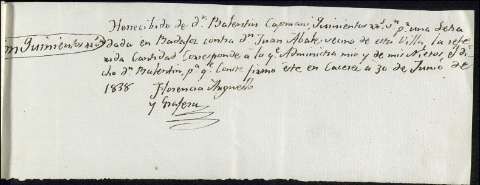 He recibido de dn. Balentin Capmani, Quinientos rs. vn. pr. una letra
dada en Badajoz contra dn. Juan Abate, vecino de esta Villa, la refe-
rida Cantidad Corresponde a la qe. Administra mio y de mis Nietos, el di-
cho dn. Balentin, pa. qe. Conste firmo este en Caceres a 30 de Junio de
1838
Florencia
y